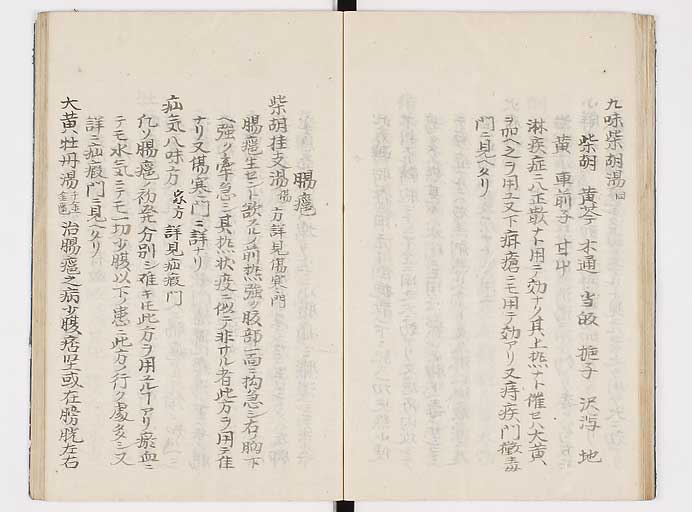 九味柴胡湯
柴胡 黄芩 木通 当皈 梔子 沢瀉 地
黄 車前子 甘艸
淋疾症ニ八正散ナト用テ効ナク其上熱ナト催セハ大黄
ヲ加ヘ之ヲ用ユ又下疳瘡ニモ用テ効アリ又痔疾門黴毒
門ニ見ヘタリ
腸癰
柴胡桂支湯 方詳見傷寒門
腸癰生セント欲スルノ前熱強ク腹部一面ニ拘急シ右ノ胸下
ヘ強ク牽急シ其熱状疫ニ似テ非サル者此方ヲ用テ佳
ナリ又傷寒門ニ詳ナリ
疝気八味方 家方 詳見疝瘕門
凡ソ腸癰ノ初発分別シ難キニ此方ヲ用ユルアリ瘀血ニ
テモ水気ニテモ一切少腹以下ノ患ニ此方ノ行ク處多シ又
詳ニ疝瘕門ニ見ヘタリ
大黄牡丹湯 千金 金匱 治腸癰之病少腹痞堅或在膀胱左右